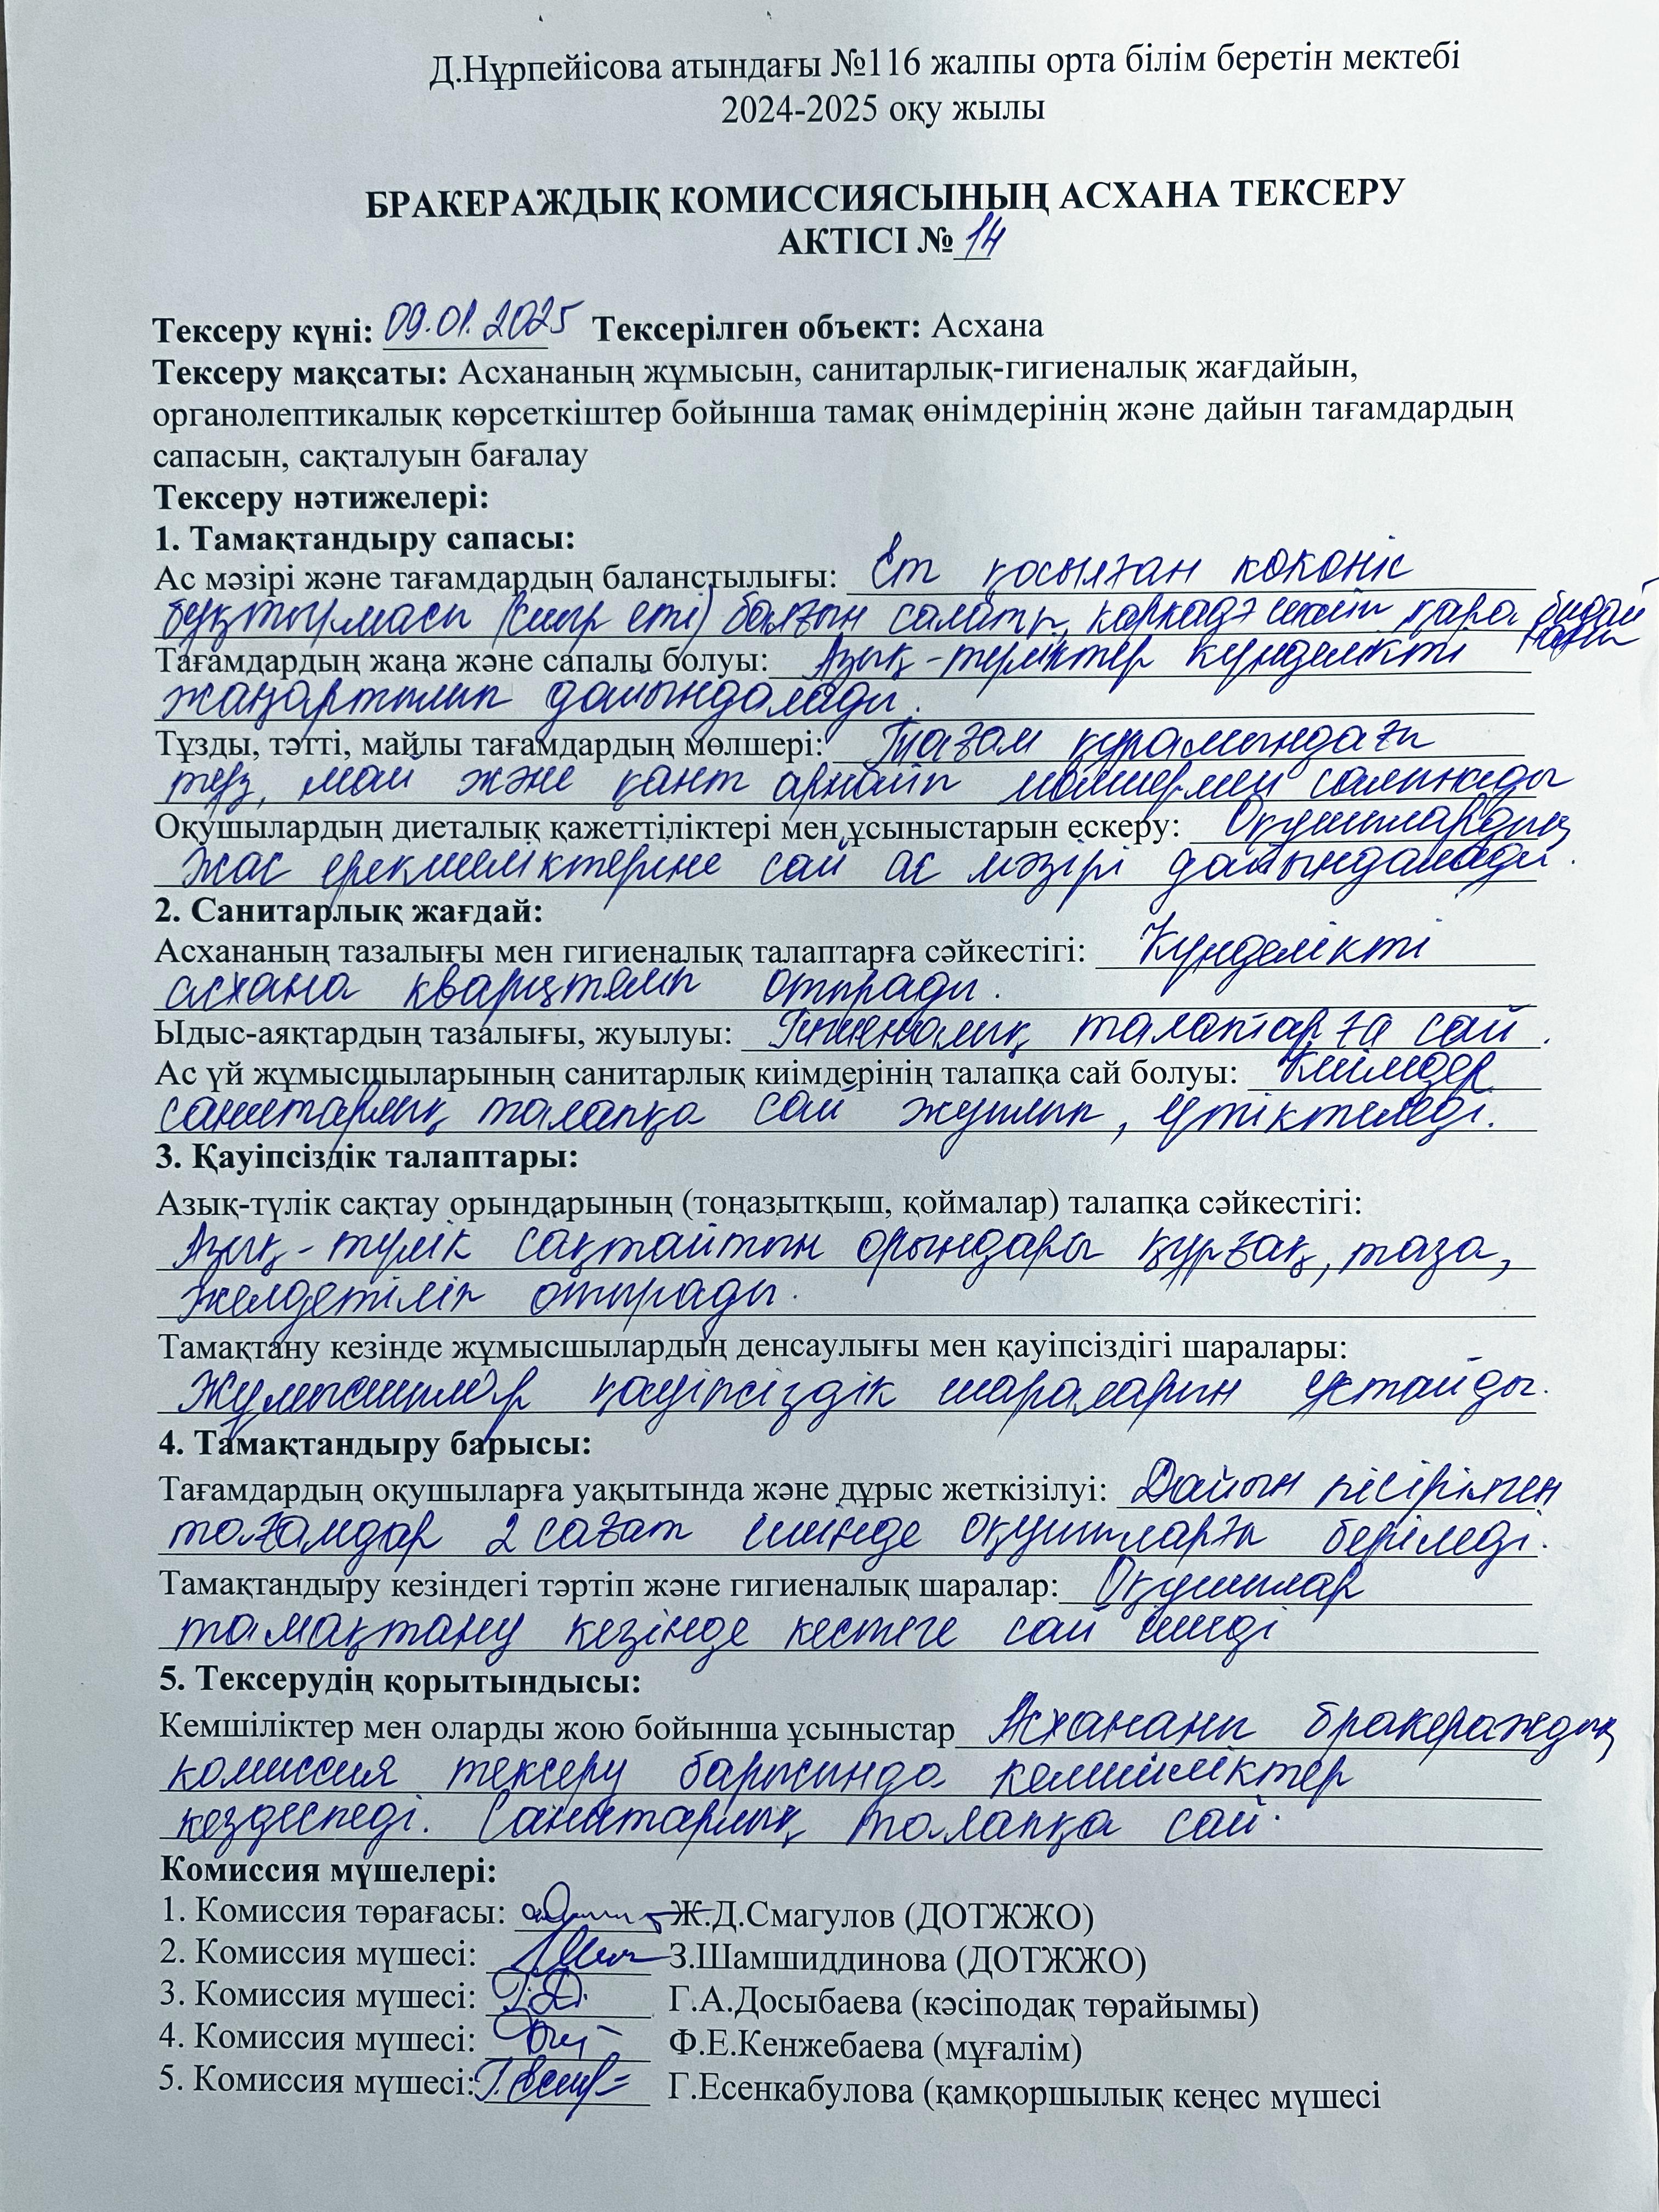 Д.Нұрпейісова атындағы №116 жалпы орта білім беретін мектебі
2024-2025 оқу жылы
БРАКЕРАЖДЫҚ КОМИССИЯСЫНЫҢ АСХАНА ТЕКСЕРУ
АКТІСІ № 14
Тексеру күні: 09.01.2025 Тексерілген объект: Асхана
Тексеру мақсаты: Асхананың жұмысын, санитарлық-гигиеналық жағдайын,
органолептикалық көрсеткіштер бойынша тамақ өнімдерінің және дайын тағамдардың
сапасын, сақталуын бағалау
Тексеру нәтижелері:
1. Тамақтандыру сапасы:
Ас мәзірі және тағамдардың баланстылығы: Ет қосылған көкөніс
бұқтырмасы (сиыр еті) балғын салаты, каркадэ шайы қара бидай
наны
Тағамдардың жаңа және сапалы болуы: Азық-түліктер күнделікті
жаңартылып дайындалады.
Тұзды, тәтті, майлы тағамдардың мөлшері: Тағам құрамындағы
тұз, май және қант арнайы мөлшермен салынады
Оқушылардың диеталық қажеттіліктері мен ұсыныстарын ескеру: Оқушылардың
жас ерекшеліктеріне сай ас мәзірі дайындалады.
2. Санитарлық жағдай:
Асхананың тазалығы мен гигиеналық талаптарға сәйкестігі: Күнделікті
асхана кварцталып отырады.
Ыдыс-аяқтардың тазалығы, жуылуы: Гигиеналық талаптарға сай.
Ас үй жұмысшыларының санитарлық киімдерінің талапқа сай болуы: Киімдер
санитарлық талапқа сай жуылып, үтіктеледі.
3. Қауіпсіздік талаптары:
Азық-түлік сақтау орындарының (тоңазытқыш, қоймалар) талапқа сәйкестігі:
Азық-түлік сақтайтын орындары құрғақ, таза,
желдетіліп отырады.
Тамақтану кезінде жұмысшылардың денсаулығы мен қауіпсіздігі шаралары:
Жұмысшылар қауіпсіздік шараларын ұстайды.
4. Тамақтандыру барысы:
Тағамдардың оқушыларға уақытында және дұрыс жеткізілуі: Дайын пісірілген
тағамдар 2 сағат ішінде оқушыларға беріледі.
Тамақтандыру кезіндегі тәртіп және гигиеналық шаралар: Оқушылар
тамақтану кезінде кестеге сай ішеді
5. Тексерудің қорытындысы:
Кемшіліктер мен оларды жою бойынша ұсыныстар Асхананы бракераждық
комиссия тексеру барысында кемшіліктер
кездеспеді. Санитарлық талапқа сай.
Комиссия мүшелері:
1. Комиссия төрағасы: Ж.Д.Смагулов (ДОТЖЖО)
2. Комиссия мүшесі: З.Шамшиддинова (ДОТЖЖО)
3. Комиссия мүшесі: Г.А.Досыбаева (кәсіподақ төрайымы)
4. Комиссия мүшесі: Ф.Е.Кенжебаева (мұғалім)
5. Комиссия мүшесі: Г.Есенкабулова (қамқоршылық кеңес мүшесі